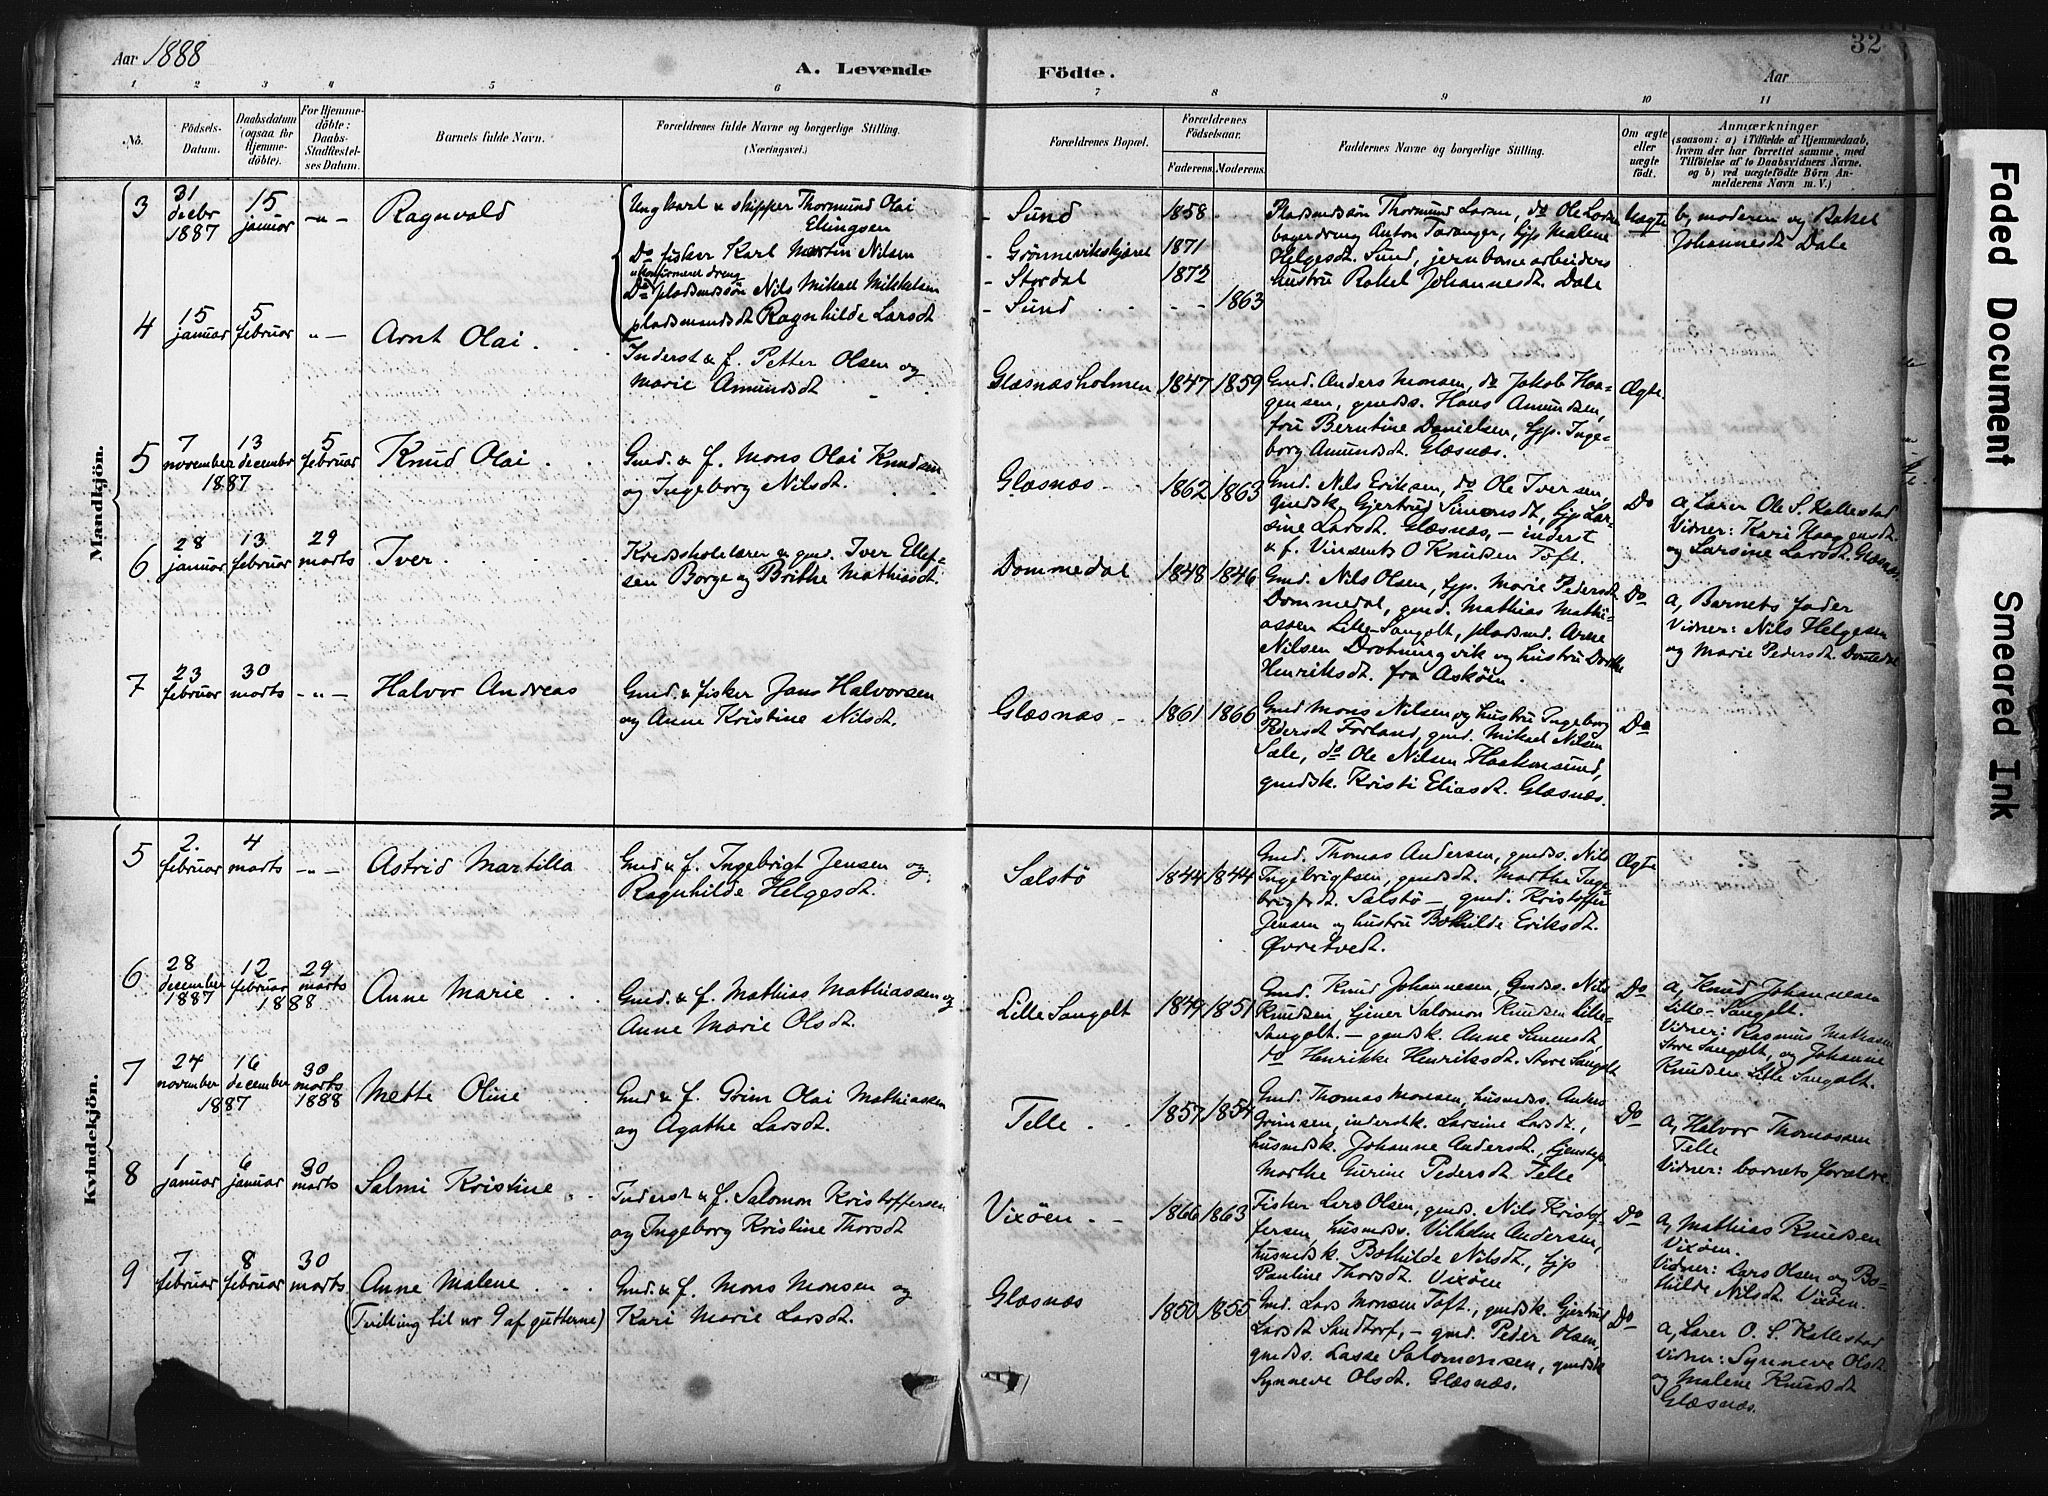 Aar 1888
A. Levende Födte.
Aar
32
1 2 3 4 5 6 7 8 9 10 11
No.
Födsels-Datum.
Daabsdatum (ogsaa för Hjemmedöbte).
For Hjemmedöbte: Daabs-Stadfæstelses Datum.
Barnets fulde Navn.
Forældrenes fulde Navne og borgerlige Stilling.
(Næringsvei.)
Forældrenes Bopæl.
Forældrenes Födselsaar.
Faderens. Moderens.
Faddernes Navne og borgerlige Stilling.
Om ægte eller uægte födt.
Anmærkninger
(saasom: a) i Tilfælde af Hjemmedaab, hvem der har forrettet samme, med Tilföielse af to Daabsvidners Navne. og b) ved uægtefödte Börn Anmelderens Navn m. V.)
Mandkjön.
3
31 decbr 1887
15 januar
-"-
Ragnvald
Ungkarl & skipper Thormund Olai
Ellingsen
Do fisker Karl Martin Nilsen
ukonfirmert dreng
Do pladsmandssön Nils Mikael Mikkelsen
pladsmandsdt Ragnhilde Larsdt
- Sund 1858
- Grønneviksskjæret 1871
- Stordal 1872
- Sund - - 1863
Pladsmdssön Thormund Larsen, do Ole Larsen
Anton Taranger, tjp Malene
Helgesdt. Sund, jernbanearbeiders
hustru Rakel Johannesdt. Dale
Uægte
b, moderen og Rakel
Johannesdt Dale
4
15 januar
5 februar
"-
Arnt Olai
Inderst & f. Petter Olsen og
Marie Amundsdt
Glæsnæsholmen 1847 1859
Gmd. Anders Monsen, do Jakob Haa-
gensen, gmdss. Hans Amundsen,
fru Berntine Danielsen, tjp. Inge-
borg Amundsdt. Glæsnæs.
Ægte
5
7 november 13 decembr
1887
5 februar
Knud Olai
Gmd. & f. Mons Olai Knudsen
og Ingeborg Nilsdt.
Glæsnæs 1862 1863
Gmd. Nils Eriksen, do Ole Iversen,
gmdsk. Gjertrud Simonsdt, tjp Lar-
sine Larsdt. Glæsnæs, - inderst
& f. Vinsents O Knudsen Toft.
Do
a, Lærer Ole S. Kallestad
Vidner: Kari Haagensdt.
og Larsine Larsdt. Glæsnæs
6
28 januar
13 februar
29 marts
Iver
Kredsskolelærer & gmd. Iver Ellef-
sen Borge og Brithe Mathiasdt.
Dommedal 1848 1846
Gmd. Nils Olsen, tjp. Marie Pedersdt
Dommedal, gmd. Mathias Mathi-
assen Lille-Sangolt, pladsmd. Arne
Nilsen Drotningvik og hustru Dorthe
Henriksdt. fra Askøen.
Do
a, Barnets fader
Vidner: Nils Helgesen
og Marie Pedersdt.
7
23 februar
30 marts
-"-
Halvor Andreas
Gmd. & fisker Jans Halvorsen
og Anne Kristine Nilsdt.
Glæsnæs - 1861 1866
Gmd Mons Nilsen og hustru Ingeborg
Pedersdt Forland, gmd. Mikael Nilsen
Sæle, do Ole Nilsen Haakonsund,
gmdsk. Kristi Eliasdt. Glæsnæs.
Do
Kvindekjön.
5
2. februar
4 marts
-"-
Astrid Martilla
Gmd & f. Ingebrigt Jensen og
Ragnhilde Helgesdt.
Salstø 1844 1844
Gmd. Thomas Andersen, gmdss. Nils
Ingebrigtsen, gmdsdt. Marthe Inge-
brigtsdt. Salstø -, gmd. Kristoffer
Jensen og hustru Bothilde Eriksdt.
Øvretvedt.
Ægte
6
28 desember 1887
12 februar
29 marts
1888
Anne Marie
Gmd. & f. Mathias Mathiassen og
Anne Marie Olsdt.
Lille Sangolt 1849 1851
Gmd. Knud Johannesen, Gmdss. Nils
Knudsen, tjener Salomon Knudsen Lille-
Sangolt. - gmdsk. Anne Simensdt,
do Henrikke Henriksdt. Store Sangolt
Do
a, Knud Johannesen
Lille-Sangolt.
Vidner: Rasmus Mathiasen
Store Sangolt, og Johanne
Knudsen Lille Sangolt.
7
24 november 16 december
1887
30 marts 1888
Mette Oline
Gmd & f. Grim Olai Mathiassen
og Agathe Larsdt.
Telle 1857 1854
Gmd. Thomas Monsen, husmdss. Anders
Grimsen, inderstk. Larsine Larsdt.,
husmdsk. Johanne Andersdt.,
Marthe Gurine Pedersdt Telle
Do
a, Halvor Thomassen
Telle
Vidner: barnets forældre.
8
1 januar
6 januar
30 marts
Salmi Kristine
Inderst & f. Salomon Kristoffersen
og Ingeborg Kristine Thorsdt
Vixøen 1866 1863
Fisker Lars Olsen, gmds. Nils Kristof-
fersen, husmdss. Vilhelm Andersen,
husmdsk. Bothilde Nilsdt., tjp
Pauline Thorsdt. Vixøen
Do
a, Mathias Knudsen
Vixøen.
Vidner: Lars Olsen og Bo-
thilde Nilsdt. Vixøen.
9
7 februar
8 februar
30 marts
Anne Malene
(Tvilling til nr 9 af gutterne)
Gmd. & f. Mons Monsen og
Kari Marie Larsdt.
Glæsnæs 1850 1855
Gmd. Lars Monsen Toft, gmdsk. Gjertrud
Larsdt Sandtorf, - gmd. Peder Olsen,
gmdss. Lasse Salomonsen, gmdsk
Synneve Olsdt. Glæsnæs.
Do
a, Lærer O. S. Kallestad
Vidner: Synneve Olsdt
og Malene Knudsdt
Glæsnæs.
Faded Document
Smeared Ink